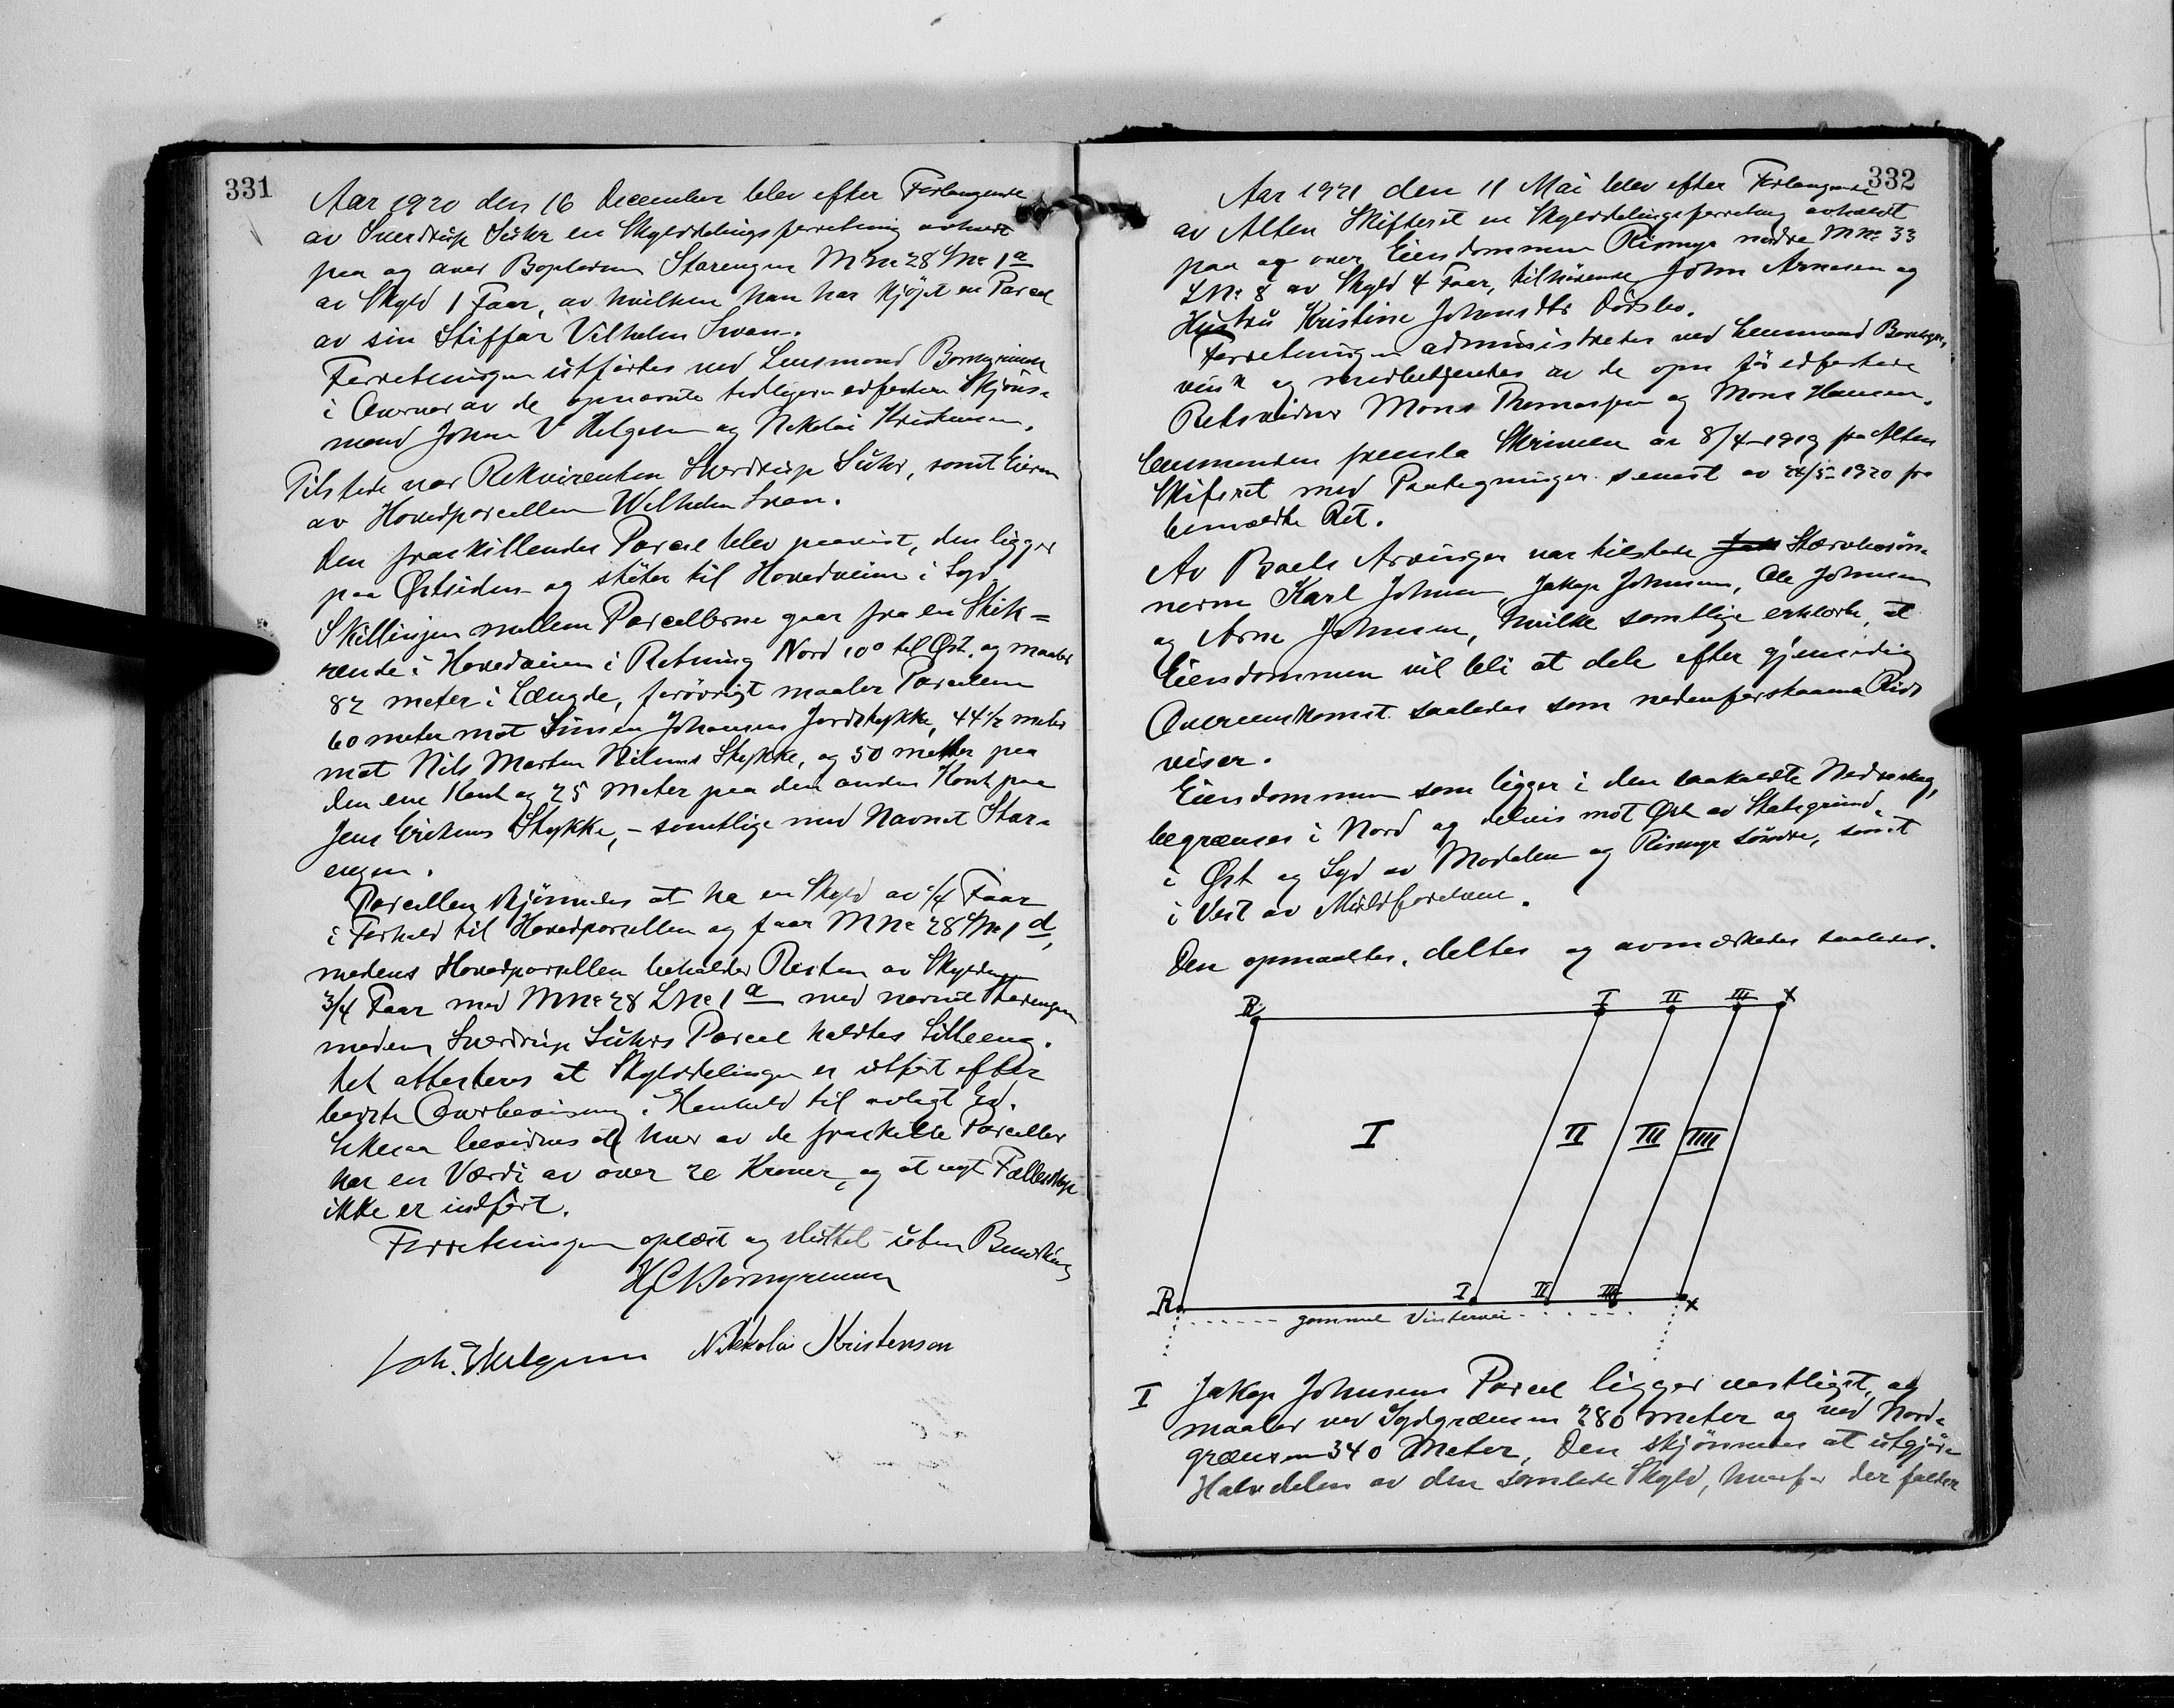 331
Aar 1920 den 16 December blev efter Forlangende
av Sverdrup Suhr en Skylddelingsforretning avholdt
paa og over Bopladsen Starengen M No 28 L No 1 a
av Skyld 1 Faar, av hvilken han har kjöpt en Parcel
av sin Stiffar Vilhelm Svan.
Forretningen utfördes ved Lensmand
i Overvær av de opnævnte tidligere edfæstede Skjöns-
mænd Johan V Helgesen og Nikolai Kristensen.
Tilstede var Rekvirenten Sverdrup Suhr, samt Eieren
av Hovedparcellen Wilhelm Svan.
Den fraskillendes Parcel blev paavist, den ligger
paa Østsiden og stöter til Hovedveien i Syd.
Skillingen mellem Parcellerne gaar fra en Stik=
rende i Hovedveien i Retning Nord 10° til Øst, og maaler
82 meter i Længde, forövrigt maaler Parcellen
60 meter mot Simon Johansens Jordstykke, 44 1/2 meter
mot Nils Morten Nilsens Stykke, og 50 meter paa
den ene Kant og 25 meter paa den anden Kant paa
Jens Eriksens Stykke, - samtlige med Navnet Star-
engen.
Parcellen skjönnedes at ha en Skyld av 1/4 Faar
i Forhold til Hovedparcellen og faar M No 28 L No 1 d,
medens Hovedparcellen beholder Resten av Skylden
3/4 Faar med M No 28 L No 1 a med navnet Starengen
medens Sverdrup Suhrs Parcel kaldtes Lilleeng.
Det attesteres at Skylddelingen er utfört efter
bedste Overbevisning i Henhold til avlagt Ed.
Likesaa bevidnes at hver av de fraskilte Parceller
har en Værdi av over 20 Kroner, og at nyt Fællesskap
ikke er indfört.
Forretningen oplæst og sluttet uten Bemerkning
Joh. V Helgesen Nikkolai Kristenson
332
Aar 1921 den 11 Mai blev efter Forlangende
av Alten Skifteret en Skylddelingsforretning avholdt
paa og over Eiendommen Rismyr nedre M No 33
L No 8 av Skyld 4 Faar, tilhörende John Arnesen og
Hustru Kristine Johnsdtr Dödsbo.
Forretningen administreres ved Lensmand
og medbetjentes av de opn för edfæstede
Retsvidner Mons Thomassen og Mons Hansen.
Lensmanden fremla Skrivelse av 8/4-1919 fra Alten
Skifteret med Paategninger senest av 1920 fra
bemældte Ret.
Av Boets Arvinger var tilstede Stærvbosön-
nerne Karl Johnsen, Jakop Johnsen, Ole Johnsen
og Arne Johnsen, hvilke samtlige erklærte, at
Eiendommen vil bli at dele efter gjensidig
Overenskomst saaledes som nedenforstaaende Rids
viser.
Eiendommen som ligger i den saakaldte Nedreskog,
begrænses i Nord og delvis mot Øst av Statsgrund,
i Øst og Syd av Modalen og Rismyr söndre, samt
i Vest av
Den opmaaltes, deltes og avmerkedes saaledes.
R I II III X
I II III IIII
R I II III X
gammel Vintervei
I Jakop Johnsens Parcel ligger vestligst, og
maaler ved Sydgrænsen 280 meter og ved Nord-
grænsen 340 Meter, Den skjönnedes at utgjöre
Halvdelen av den samlede Skyld, hvorfor der falder